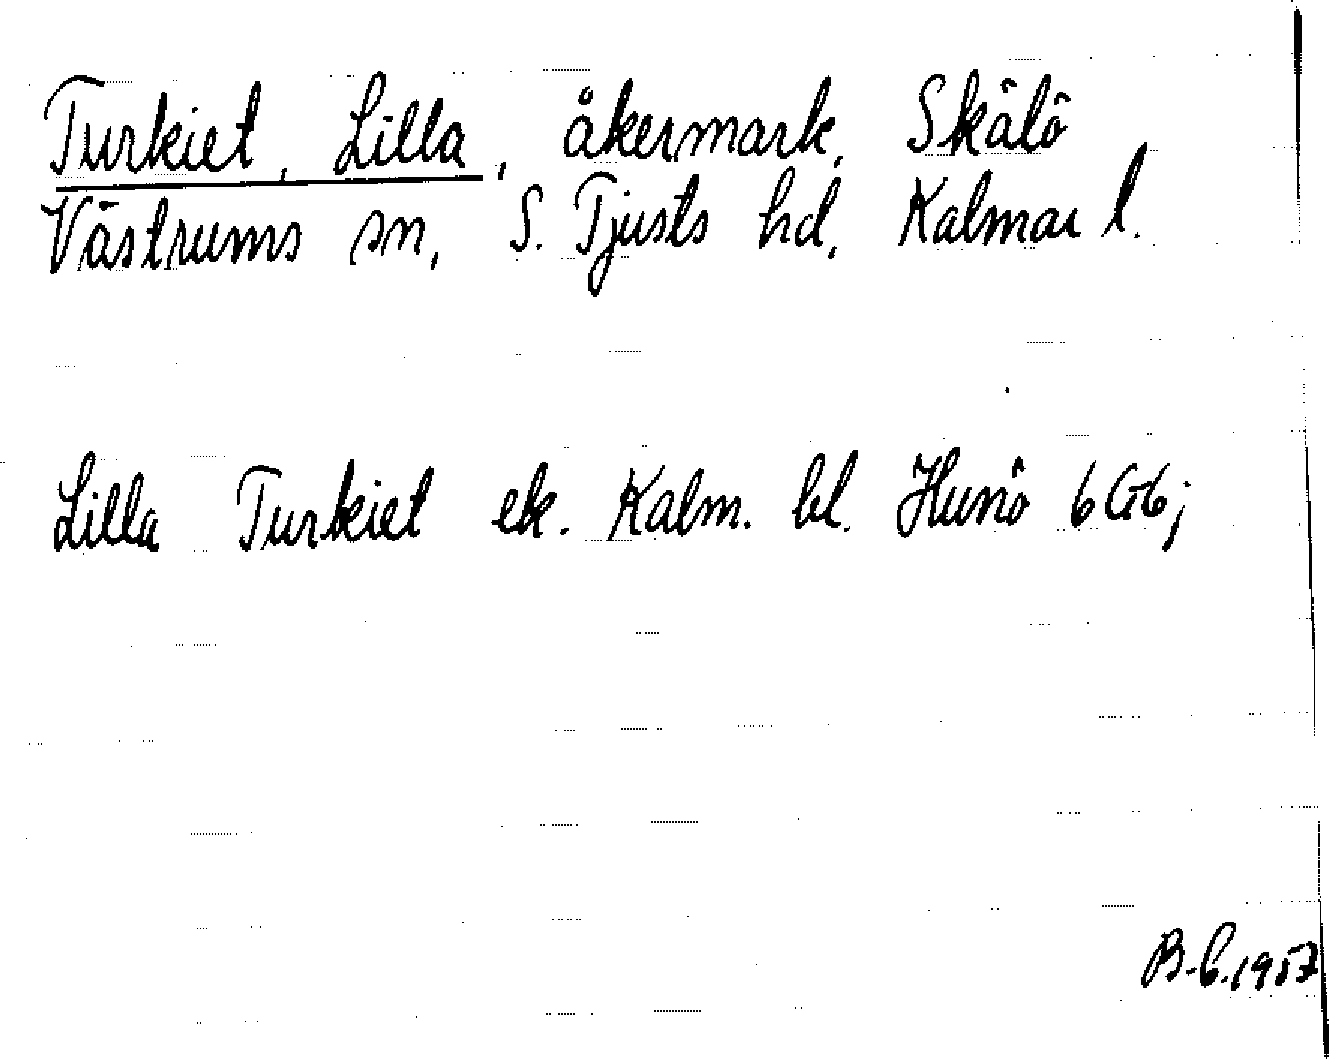 Turkiet, Lilla, åkermark, Skälö
Västrums sn, S. Tjusts hd, Kalmar l.
Lilla Turkiet ek. Kalm. bl. Hunö 6G6;
B-b.1957